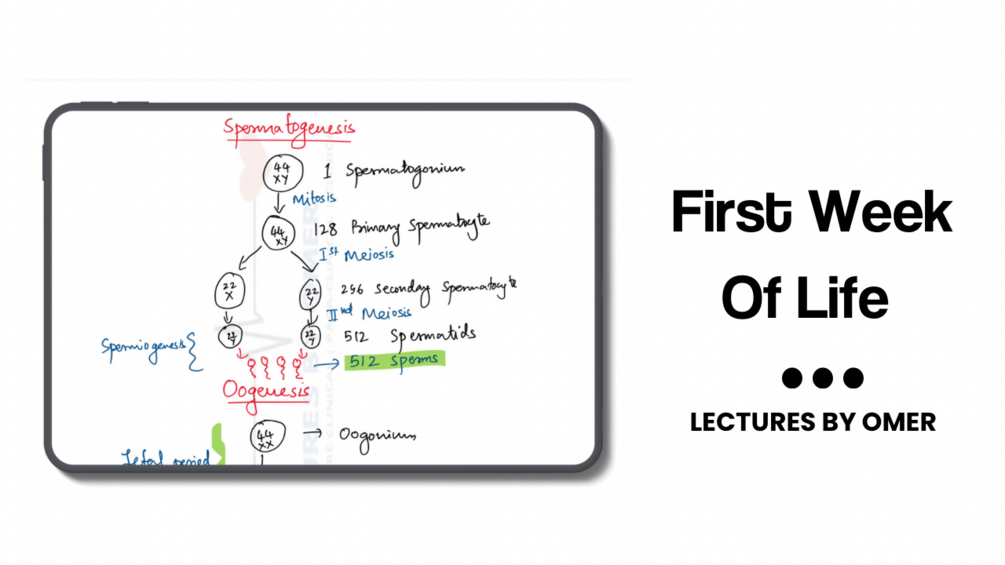 Spermatogenesis
44
XY
1 Spermatogonium
Mitosis
44
XY
128 Primary Spermatocyte
Ist Meiosis
22
X
22
Y
256 Secondary Spermatocyte
IInd Meiosis
22
Y
512 Spermatids
Spermiogenesis
512 Sperms
Oogenesis
44
XX
Oogonium
First Week
Of Life
LECTURES BY OMER